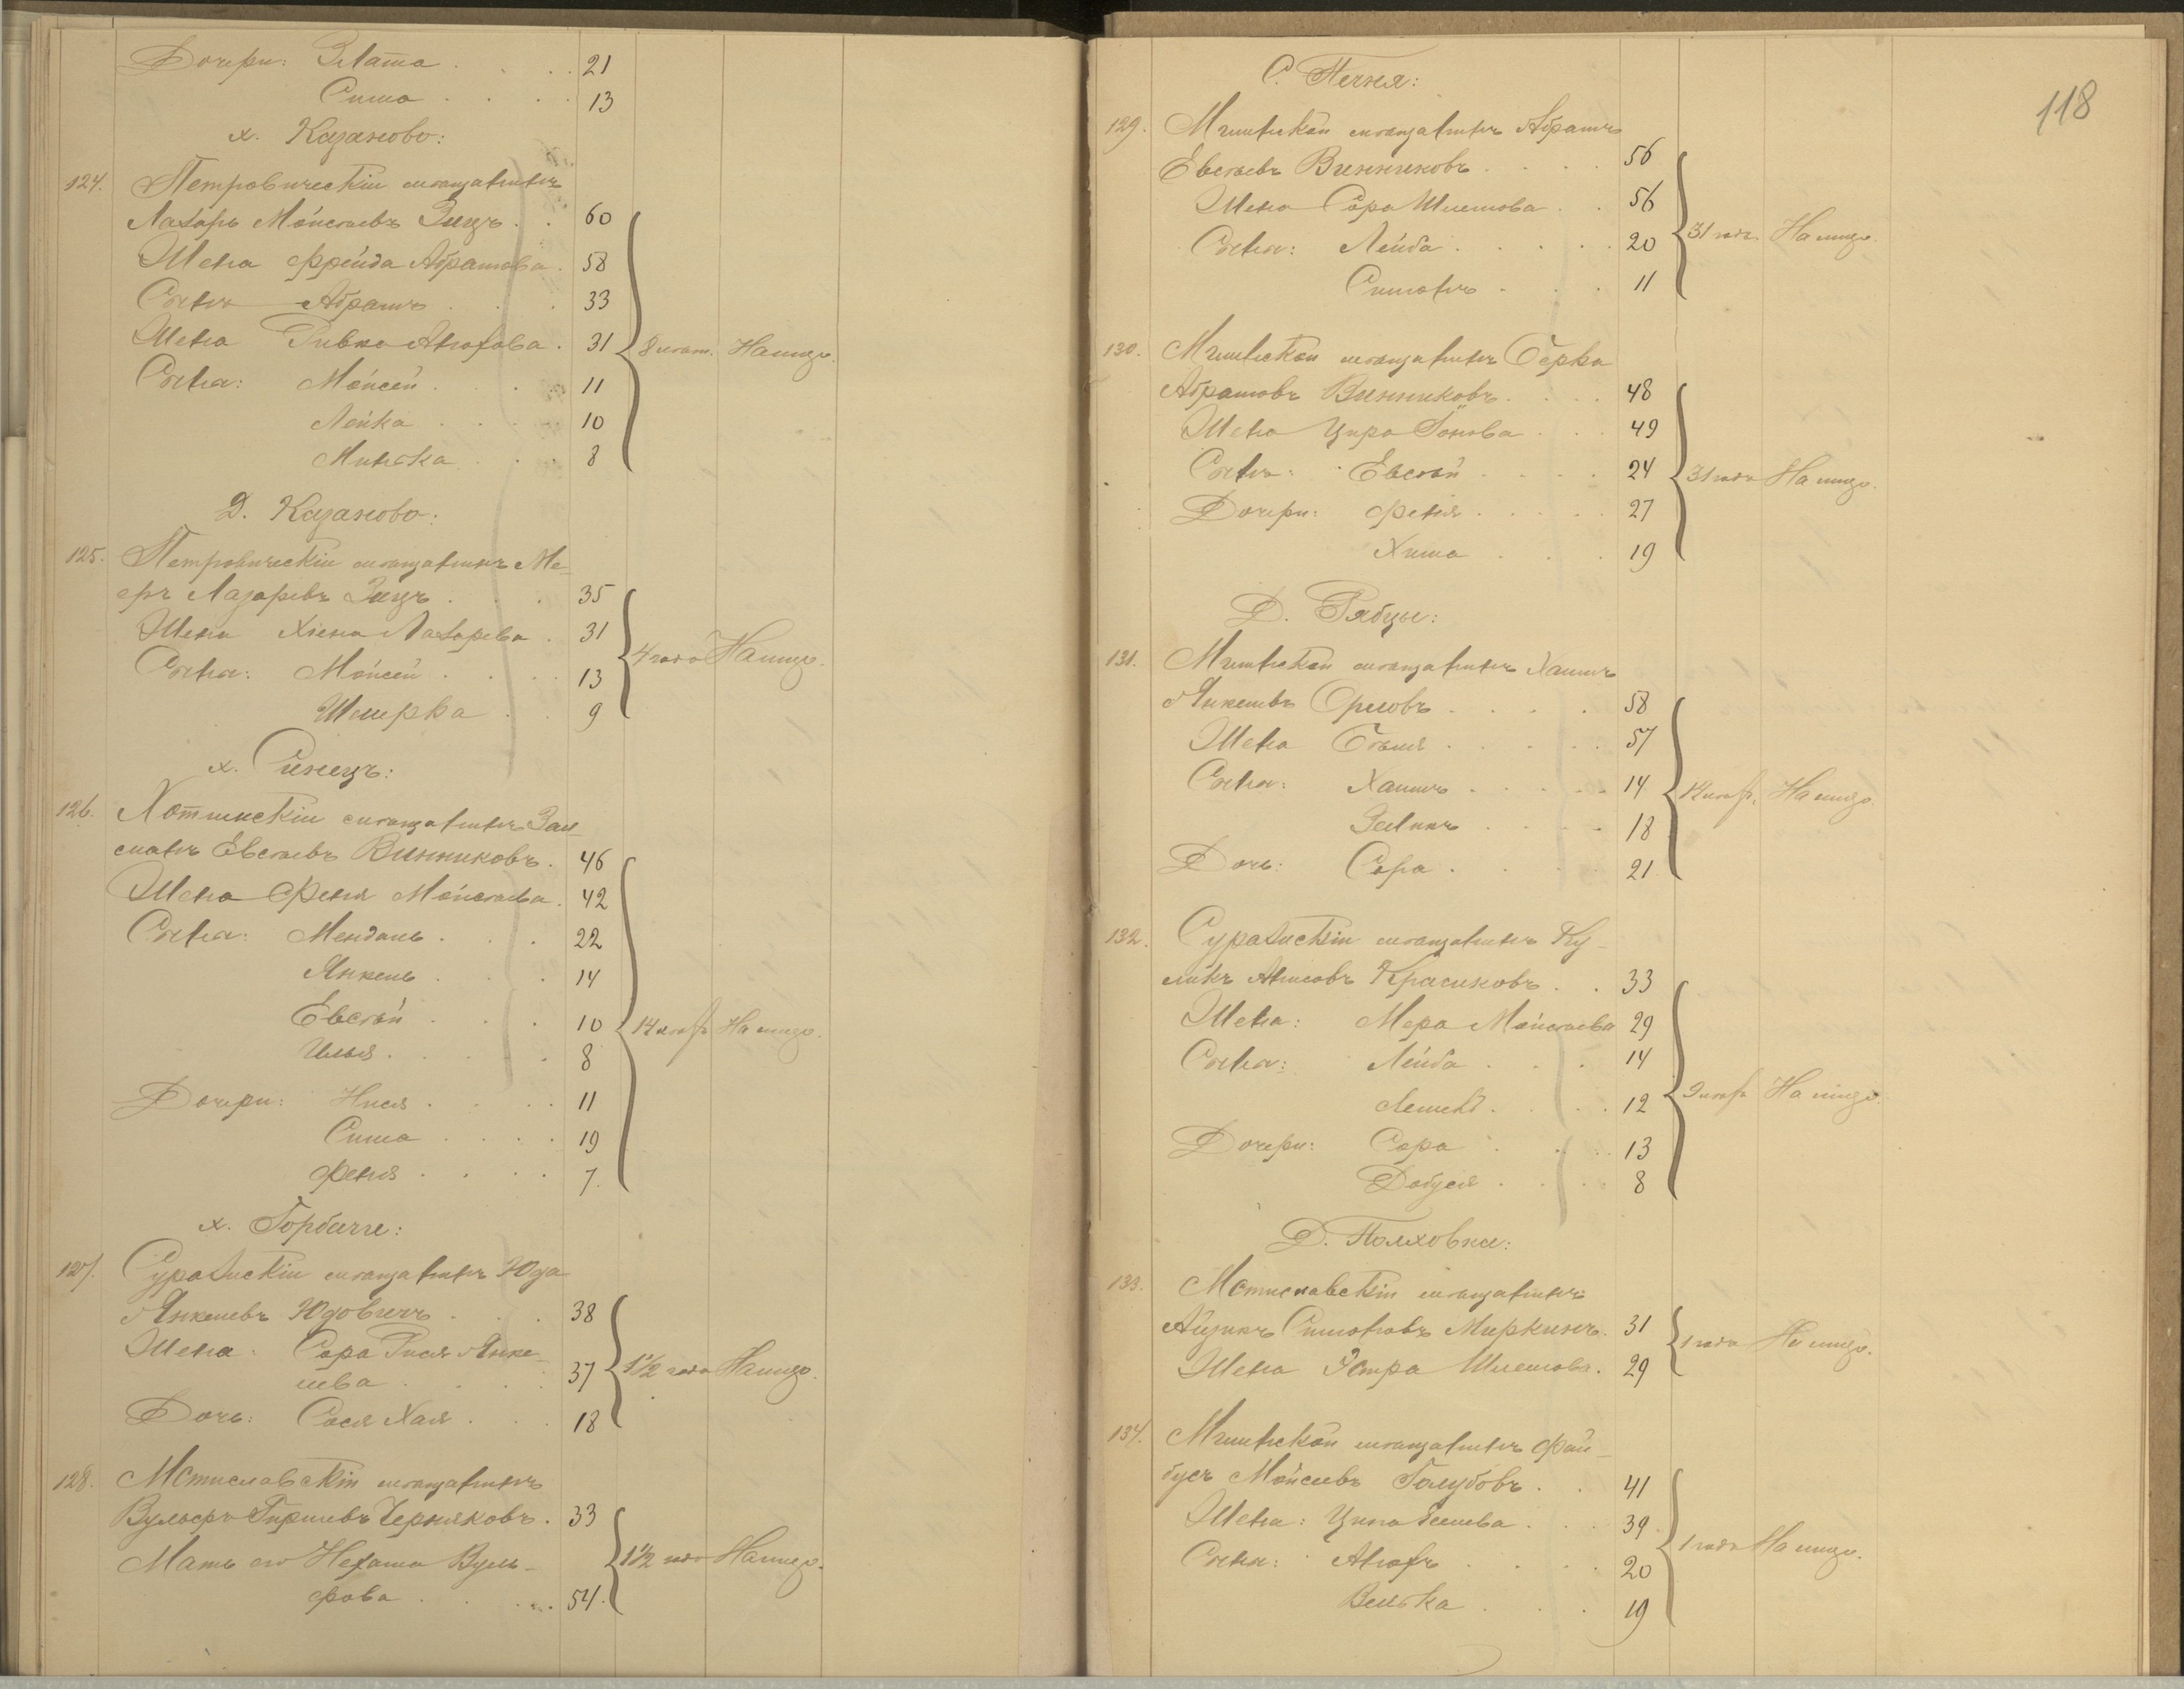 Дочери: Злата . . . 21
Сима . . . 13
х. Казаново:
124. Петровическiй мѣщанинъ
Лазарь Мойсѣевъ Зицъ . . 60
Жена Фрейда Абрамова . 58
Сынъ Абрамъ . . . 33
Жена Ривка Аронова . 31 8 лѣт. На лицо.
Сыны: Мойсей . . . 11
Лейка . . . 10
Минька . . . 8
Д. Казаново:
125. Петровическiй мѣщанинъ Ме-
еръ Лазаревъ Зицъ . . . 35
Жена Хiена Лазарева . 31 4 года На лицо.
Сыны: Мойсей . . . 13
Шмерка . . 9
х. Синецъ:
126. Хотимскiй мѣщанинъ Зал-
манъ Евсѣевъ Винниковъ . 46
Жена Феня Мойсѣева . 42
Сыны: Мендель . . . 22
Янкель . . 14
Евсѣй . . . 10 14 лѣтъ На лицо.
Илья . . . 8
Дочери: Нися . . . 11
Сима . . . 19
Феня . . . 7.
х. Горбаче:
127. Суражскiй мѣщанинъ Юда
Янкелевъ Юдовичъ . . . 38
Жена: Сора Рися Янке-
лева . . . 37 1½ года На лицо.
Дочь: Сося Хая . . . 18
128. Мстиславскiй мѣщанинъ
Вульфъ Гиршевъ Черняковъ . 33
Мать его Нехама Вуль- 1½ года На лицо.
фова . . . 54.
118
С. Печня:
129. Мглинскiй мѣщанинъ Абрамъ
Евсѣевъ Винниковъ . . . 56
Жена Сора Шлемова . . 56
Сыны: Лейба . . . 20 31 годъ На лицо.
Симонъ . . . 11
130. Мглинскiй мѣщанинъ Берка
Абрамовъ Винниковъ . . . 48
Жена Цира Гонова . . . 49
Сынъ: Евсѣй . . . 24 31 года На лицо.
Дочери: Феня . . . 27
Хима . . . 19
Д. Рябцы:
131. Мглинскiй мѣщанинъ Хаимъ
Янкелевъ Орловъ . . . 58
Жена Бѣйля . . . 57
Сыны: Хаимъ . . . 14 14 лѣтъ На лицо.
Зеликъ . . . 18
Дочь: Сора . . . 21
132. Суражскiй мѣщанинъ Ку-
ликъ Красиковъ . . 33
Жена: Мера Мойсѣева 29
Сыны: Лейба . . . 14
. . 12 9 лѣтъ На лицо.
Дочери: Сора . . . 13
Добуся . . . 8
Д. Полховка:
133. Мстиславскiй мѣщанинъ
Айзикъ Симоновъ Миркинъ . 31
Жена Эстра Шлемова . 29 1 года На лицо.
134. Мглинскiй мѣщанинъ Фай-
бусъ Мойсеевъ Голубовъ . . 41
Жена: Ципа . . . 39
Сыны: Аронъ . . . 20 1 года На лицо.
Велька . . . 19